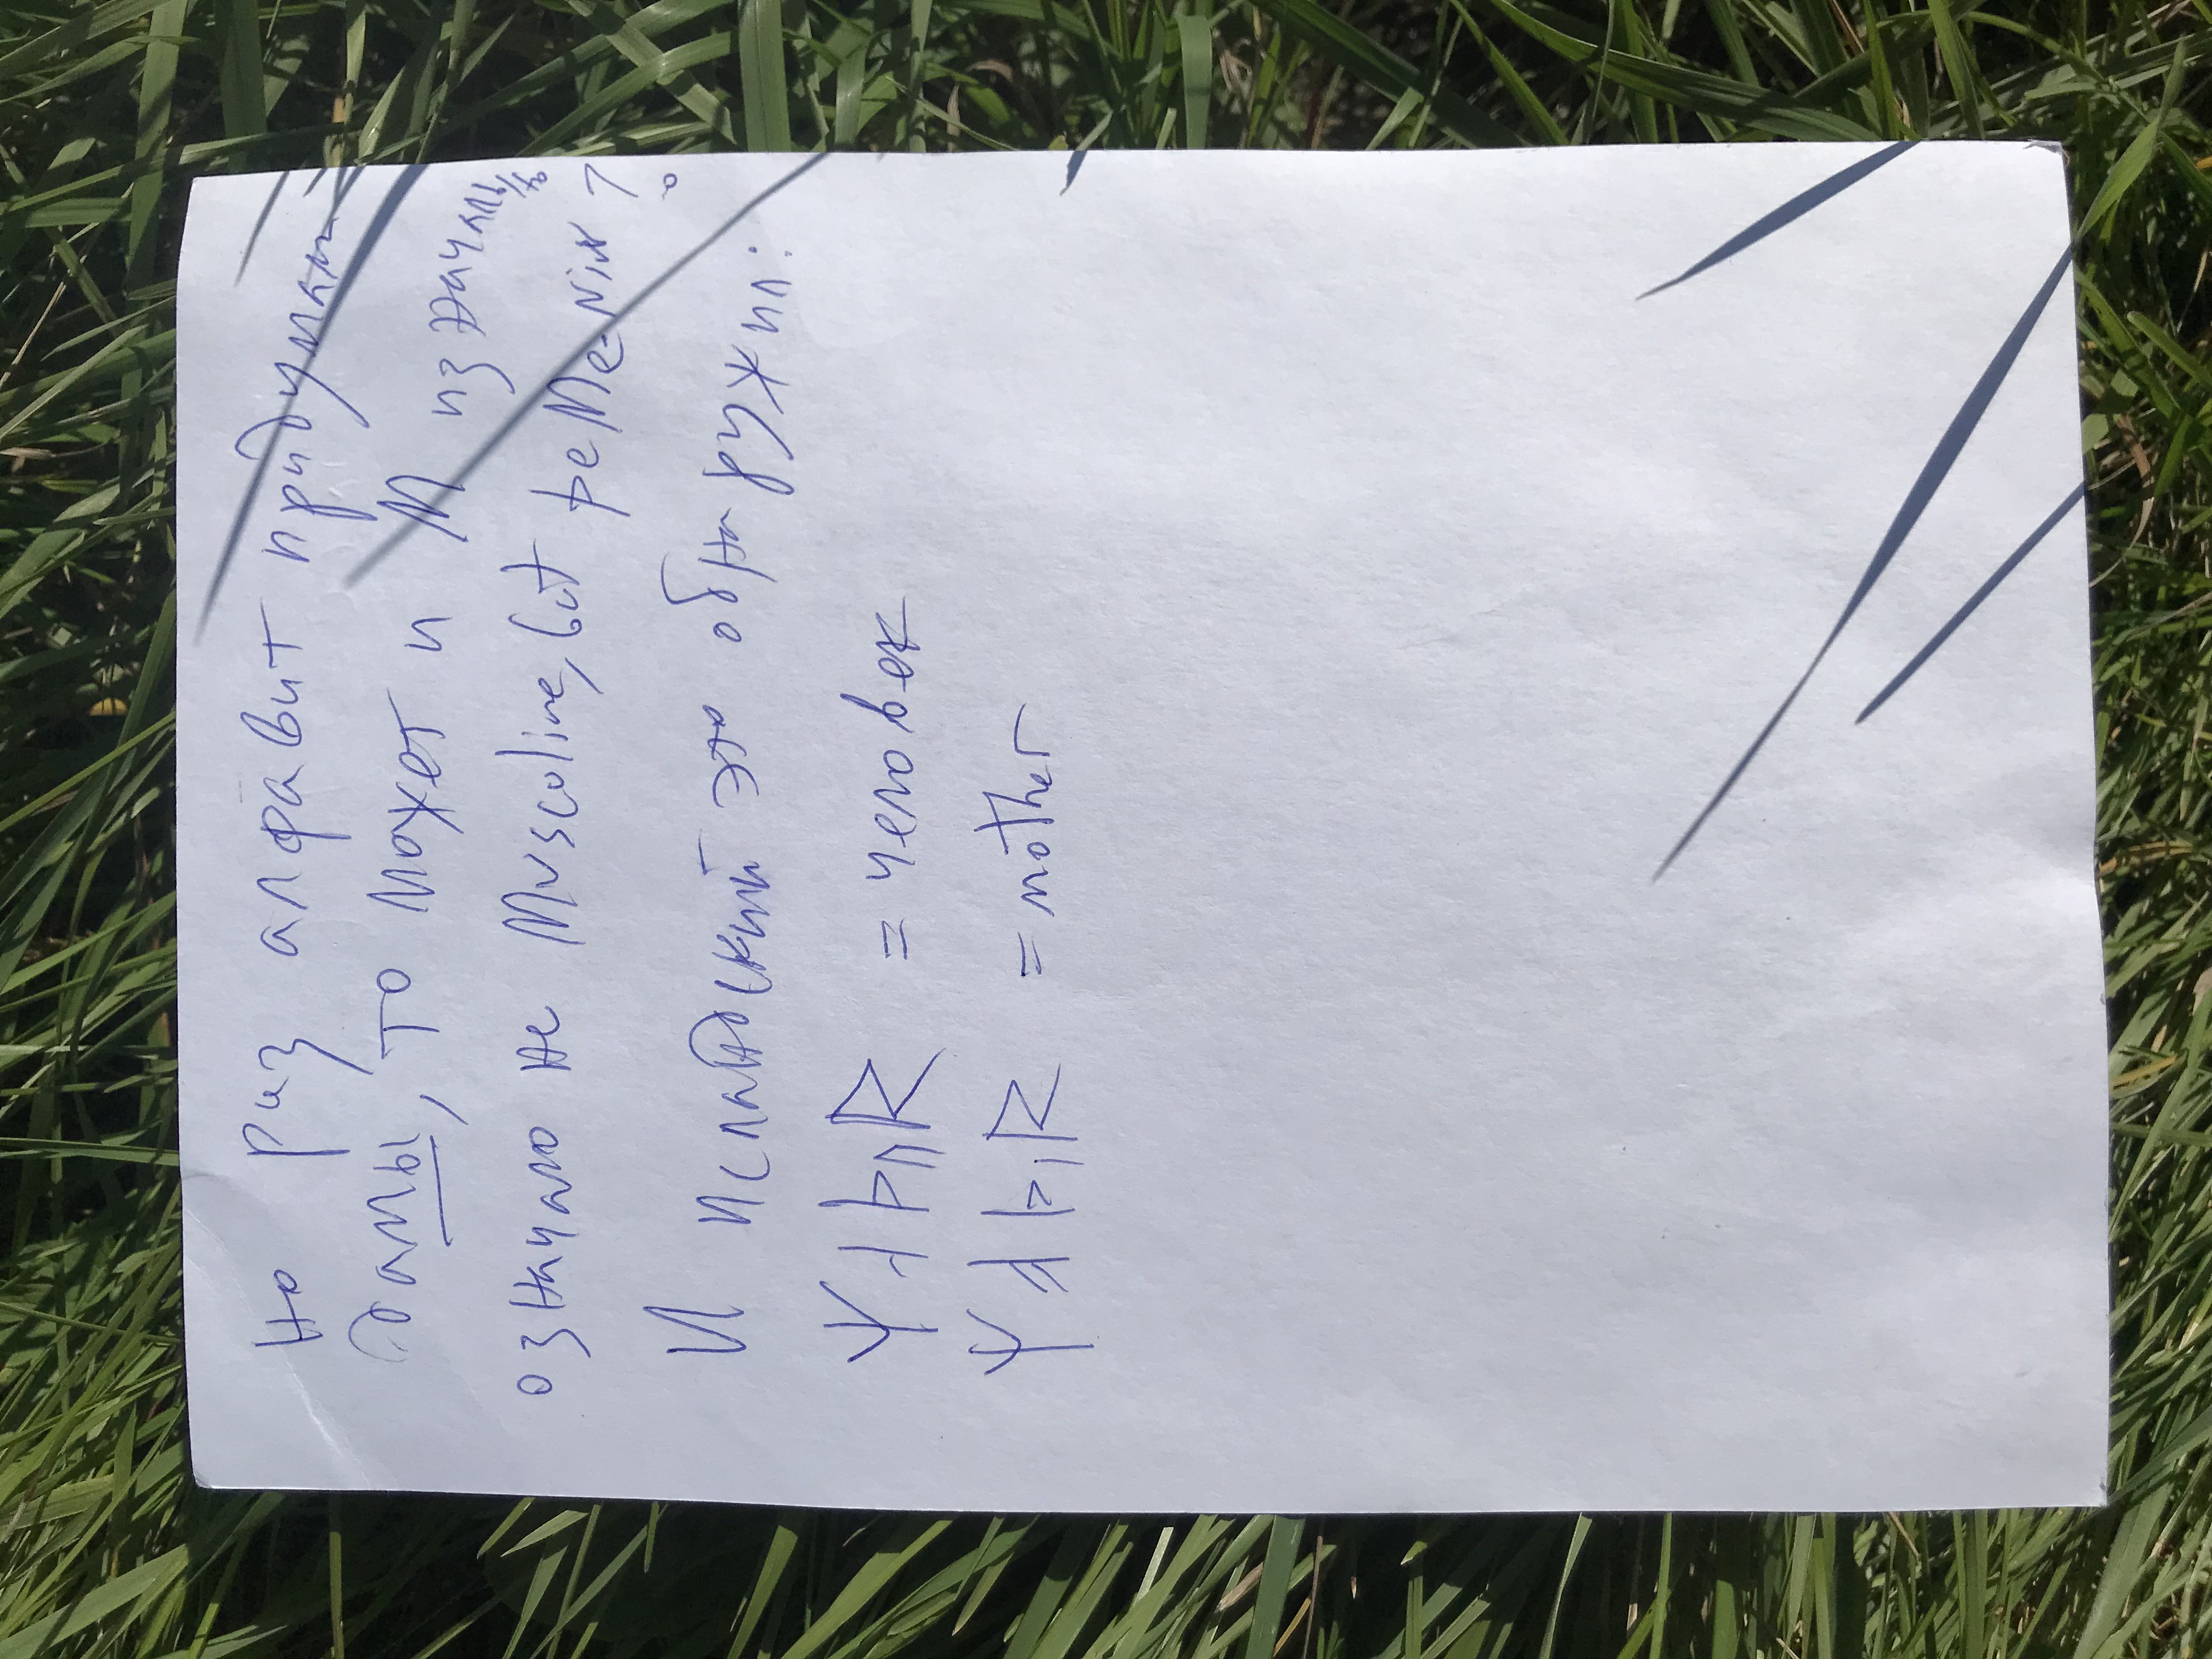 но раз алфавит придумали
дамы, то может и M изначально
означало не Muscoline, but þeMe-Nix?
И исландский это обнаружил:
ᛘ ᚦ ᚱ = человек
ᛘ ᚦ ᚱ = mother